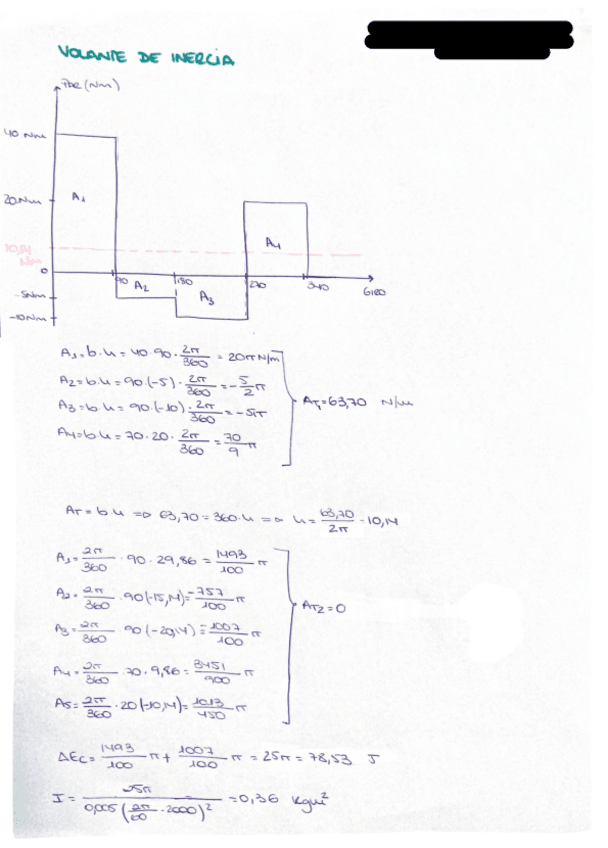 VOLANTE DE INERCIA
Par (Nm)
40 Nm
A₁
20 Nm
10,14
Nm
A₄
0
90
180
270
340
GIRO
A₂
-5Nm
A₃
-10Nm
A₁=b·h = 40·90·2π/360 = 20π N/m
A₂=b·h = 90·(-5)·2π/360 = -5/2 π
A₃=b·h = 90·(-10)·2π/360 = -5π
A₄=b·h = 70·20·2π/360 = 70/9 π
A_T=63,70 N/m
A_T = b·h => 63,70 = 360·h => h = 63,70/2π = 10,14
A₁= 2π/360 · 90 · 29,86 = 1493/100 π
A₂= 2π/360 · 90(-15,14)= -757/100 π
A₃= 2π/360 · 90(-20,14)= -1007/100 π
A₄= 2π/360 · 70 · 9,86= 3451/900 π
A₅= 2π/360 · 20(-10,14)= 1013/450 π
A_T2=0
ΔEc= 1493/100 π + 1007/100 π = 25π = 78,53 J
I = 25π/0,005(2π/60 · 2000)² = 0,36 kgm²